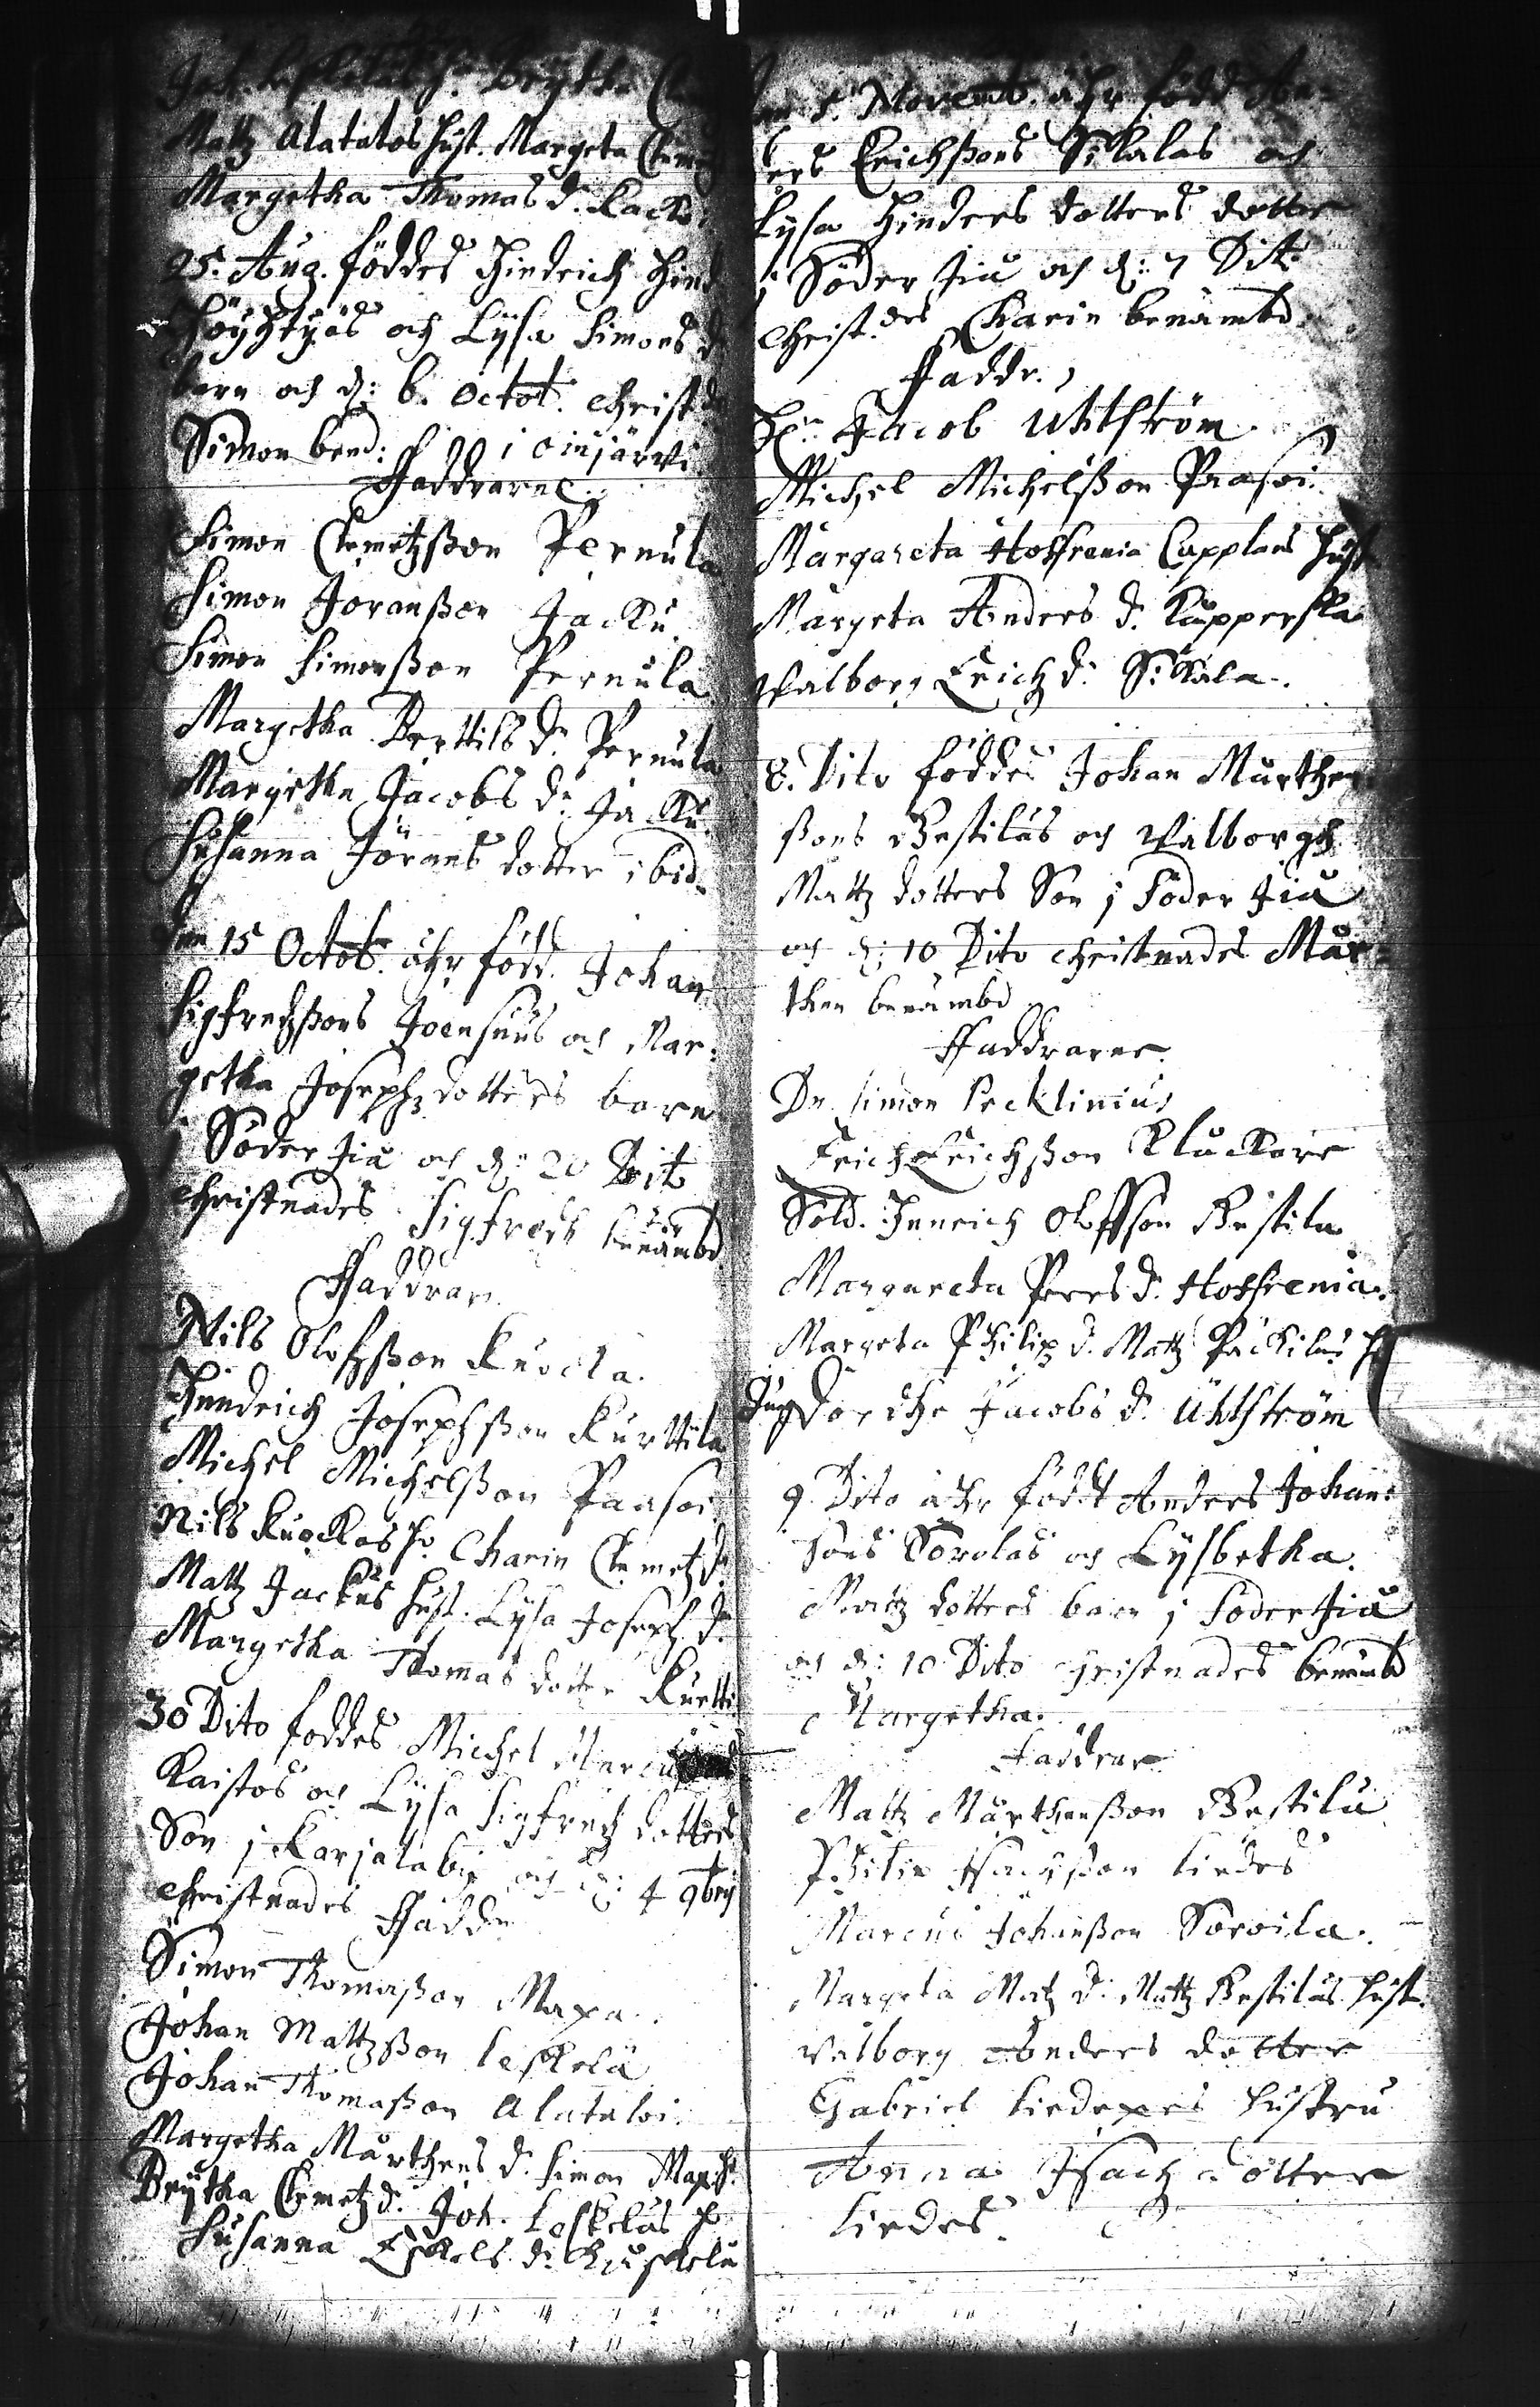 Joh. Leskeläs h: Brÿtha Cle
Mattz Alatalos hust. Margeta Clemetz
Margetha Thomas d: Kacko
25. Aug. föddes Hindrich Hind
Höyhtyäs och Lÿsa Simons d:
barn och d: 6. Octob. Christ
Simon bend: i Oinjärvi
Faddrarne
Simon Clemetzßon Pernula
Simon Joranßon Jacku
Simon Simonßon Pernula
Margetha Berttils d: Pernula
Margetha Jacobs d: Jacku
Susanna Jörans dotter ibid.
den 15 Octob: ähr född Johan
Sigfredhßons Joensuus och Mar:
getha Josephz dotters barn
i Söder Jiå och d: 20 Dit
Christnades Sigfredh benämbd
Faddrar
Nils Olofzßon Kuocka.
Hindrich Josephßon Kurttila
Michel Michelßon Paasoi
Nils Kuockas h: Charin Clemetz d:
Mattz Jackus hust. Lÿsa Joseph d:
Margetha Thomas dotter Kurtti
30 Dito föddes Michel Marcus
Kaistos och Lÿsa Sigfredz dotters
Son i Karjalabÿ och d: 4 9brij
Christnades Fadd:
Simon Thomaßon Maxa.
Johan Mattzßon Leskelä
Johan Thomaßon Alataloi.
Margetha Mårthens d: Simon Max. h:
Brÿtha Clemetz d: Joh. Leskeläs h:
Susanna Eskels d:
den 5. Novemb. ähr född An=
ders Erichßons Sikalas och
Lÿsa Hinders dotters dotter
i Söder Jiå och d: 7 Dit:
Christ.des Charin benämbd
Faddr.
H:r Jacob Uhlström
Michel Michelßon Paasoi.
Margareta Hossrenia Capplans hust
Margeta Anders d: Kupperska
Valborg Erich d: Sikala.
8. Dito föddes Johan Mårthen
ßons Bestilas och Valborgh
Mattz dotters Son i Söder Jiå
och d: 10 Dito Christnades Mår=
then benämbd
Faddrarne.
Dn. Simon Pecklinius
Erich Erichßon Kluckare
Sold. Henrich Olofsson Bestila
Margareta Peers d: Hossrenia.
Margeta Philip d: Mattz Päckilas h:
Jung Dordhe Jacobs d: Uhlström
9. Dito ähr född Anders Johan:
sons Sorolas och Lÿsbetha
Mattz dotters barn i Söder Jiå
och d: 10 Dito Christnades benämbd
Margetha.
Faddrar
Mattz Mårthenßon Bestila
Philip Isachßon Liedes
Marcus Johanßon Sorvila.
Margeta Matz d: Mattz Bestilas hust.
Valborg Anders dotter
Gabriel Liedexes hustru
Anna Isachz dotter
Liedes.